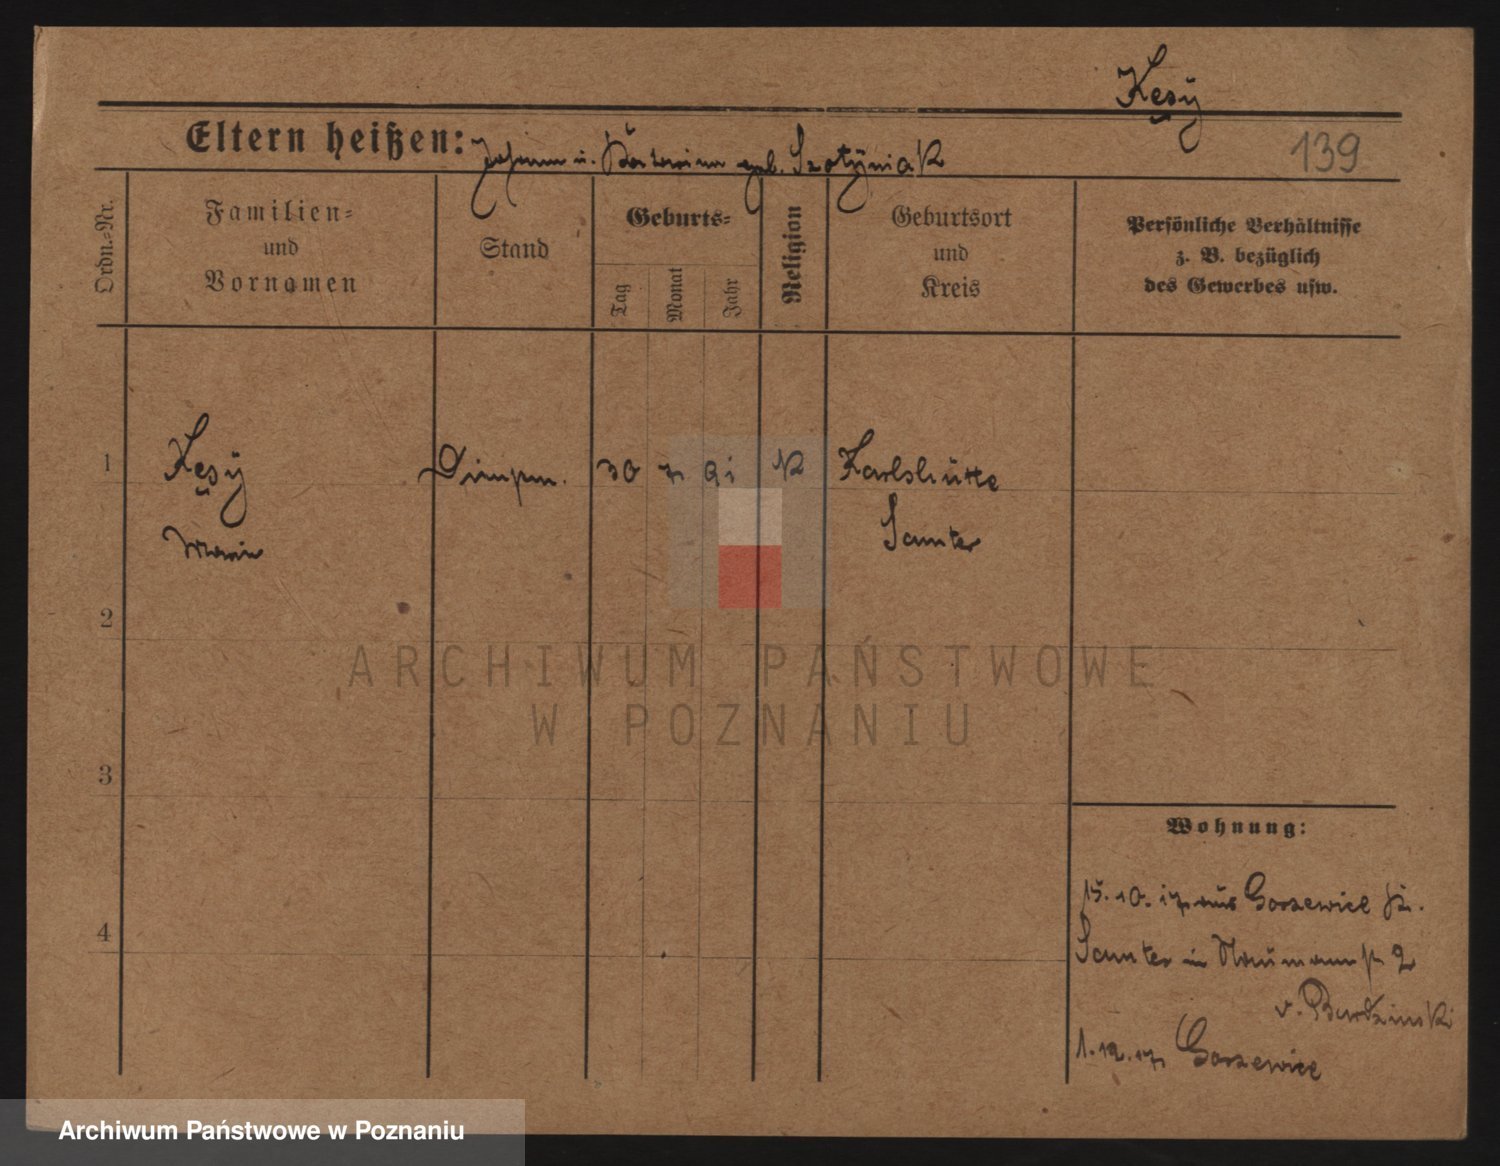 Kęsy
139
Eltern heißen: Johann u. Katharina geb. Szotyniak
Ordn.-Nr.
Familien-
und
Vornamen
Stand
Geburts-
Tag
Monat
Jahr
Religion
Geburtsort
und
Kreis
Persönliche Verhältnisse
z. B. bezüglich
des Gewerbes usw.
1
Kęsy
Marie
30 7 91 K
Karlshütte
Samter
2
3
4
ARCHIWUM PAŃSTWOWE
W POZNANIU
Wohnung:
15. 10. 17 aus Gorzewice Kr.
Samter in Naumannstr 2
v. Bardzinski
1. 12. 17 Gorzewice
Archiwum Państwowe w Poznaniu